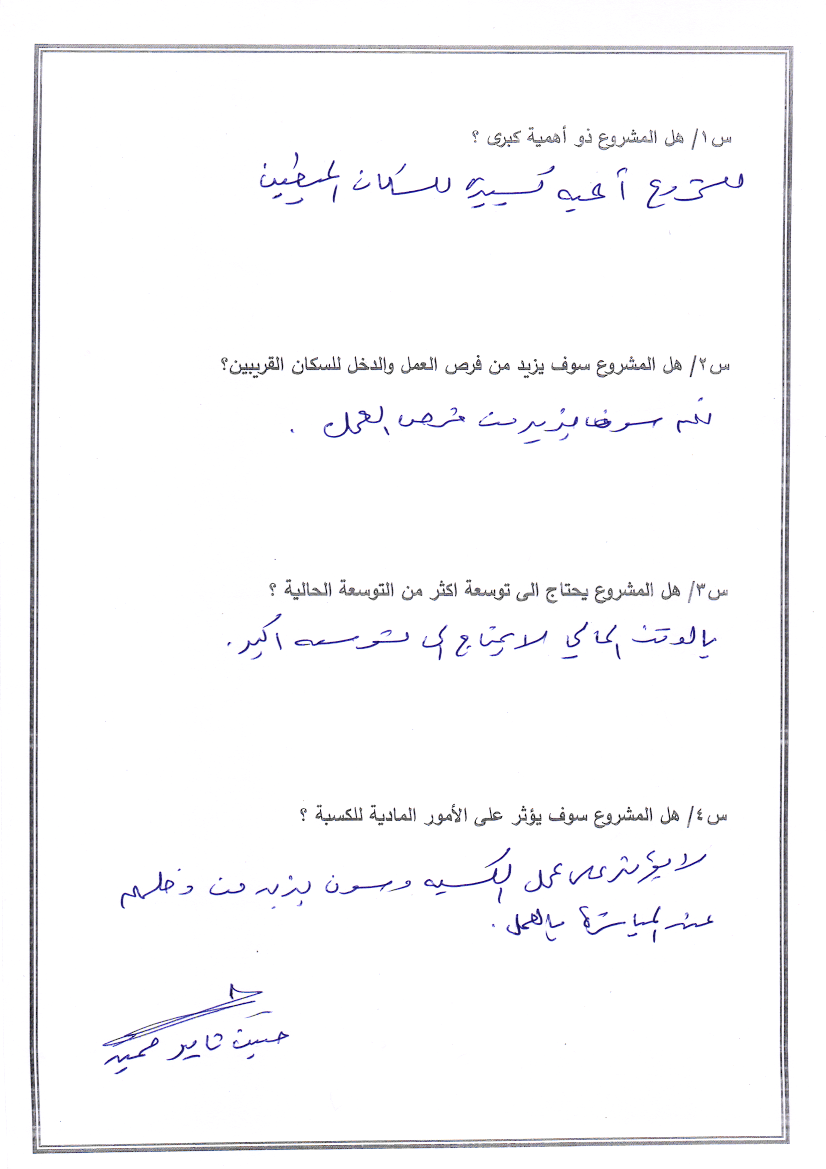 س١/ هل المشروع ذو أهمية كبرى ؟
للمشروع أهمية كبيرة للسكان المحيطين
س٢/ هل المشروع سوف يزيد من فرص العمل والدخل للسكان القريبين؟
نعم سوف يزيد من فرص العمل .
س٣/ هل المشروع يحتاج الى توسعة اكثر من التوسعة الحالية ؟
بالوقت الحالي لا يحتاج الى توسعه اكبر .
س٤/ هل المشروع سوف يؤثر على الأمور المادية للكسبة ؟
لا يؤثر على عمل الكسبه وسوف يزيد من دخلهم
عند المباشرة بالعمل .
ثامر حميد